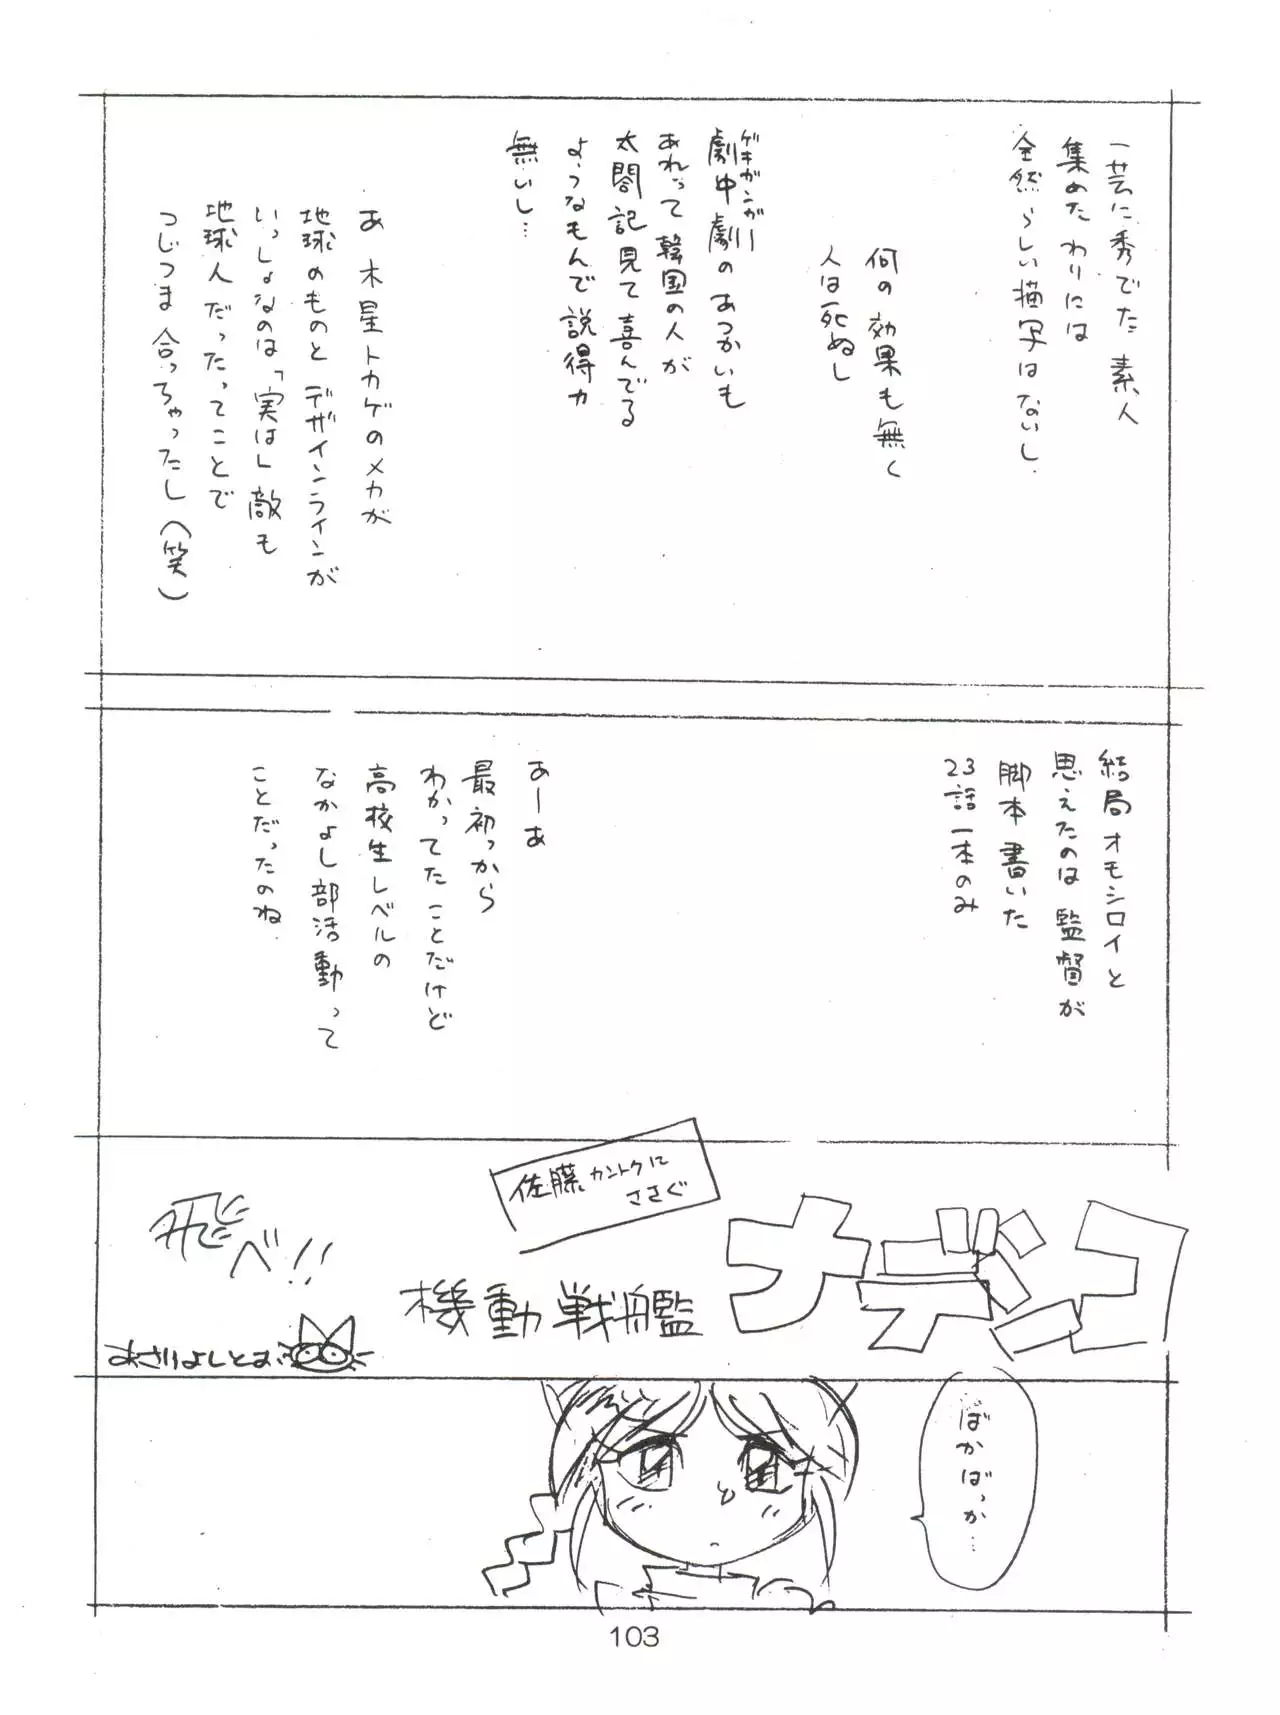 一芸に秀でた素人
集めたわりには
全然らしい描写はないし.
何の効果も無く
人は死ぬし
ゲキガンガー
劇中劇のあつかいも
あれって韓国の人が
太閤記見て喜んでる
ようなもんで説得力
無いし…
あ 木星トカゲのメカが
地球のものとデザインラインが
いっしょなのは「実は」敵も
地球人だったってことで
つじつま合っちゃったし(笑)
結局オモシロイと
思えたのは監督が
脚本書いた
23話一本のみ
あーあ
最初っから
わかってたことだけど
高校生レベルの
なかよし部活動って
ことだったのね.
佐藤カントクに
ささぐ
飛べ!!
機動戦艦
ナデシコ
あさりよしとお
ばかばっか…
103